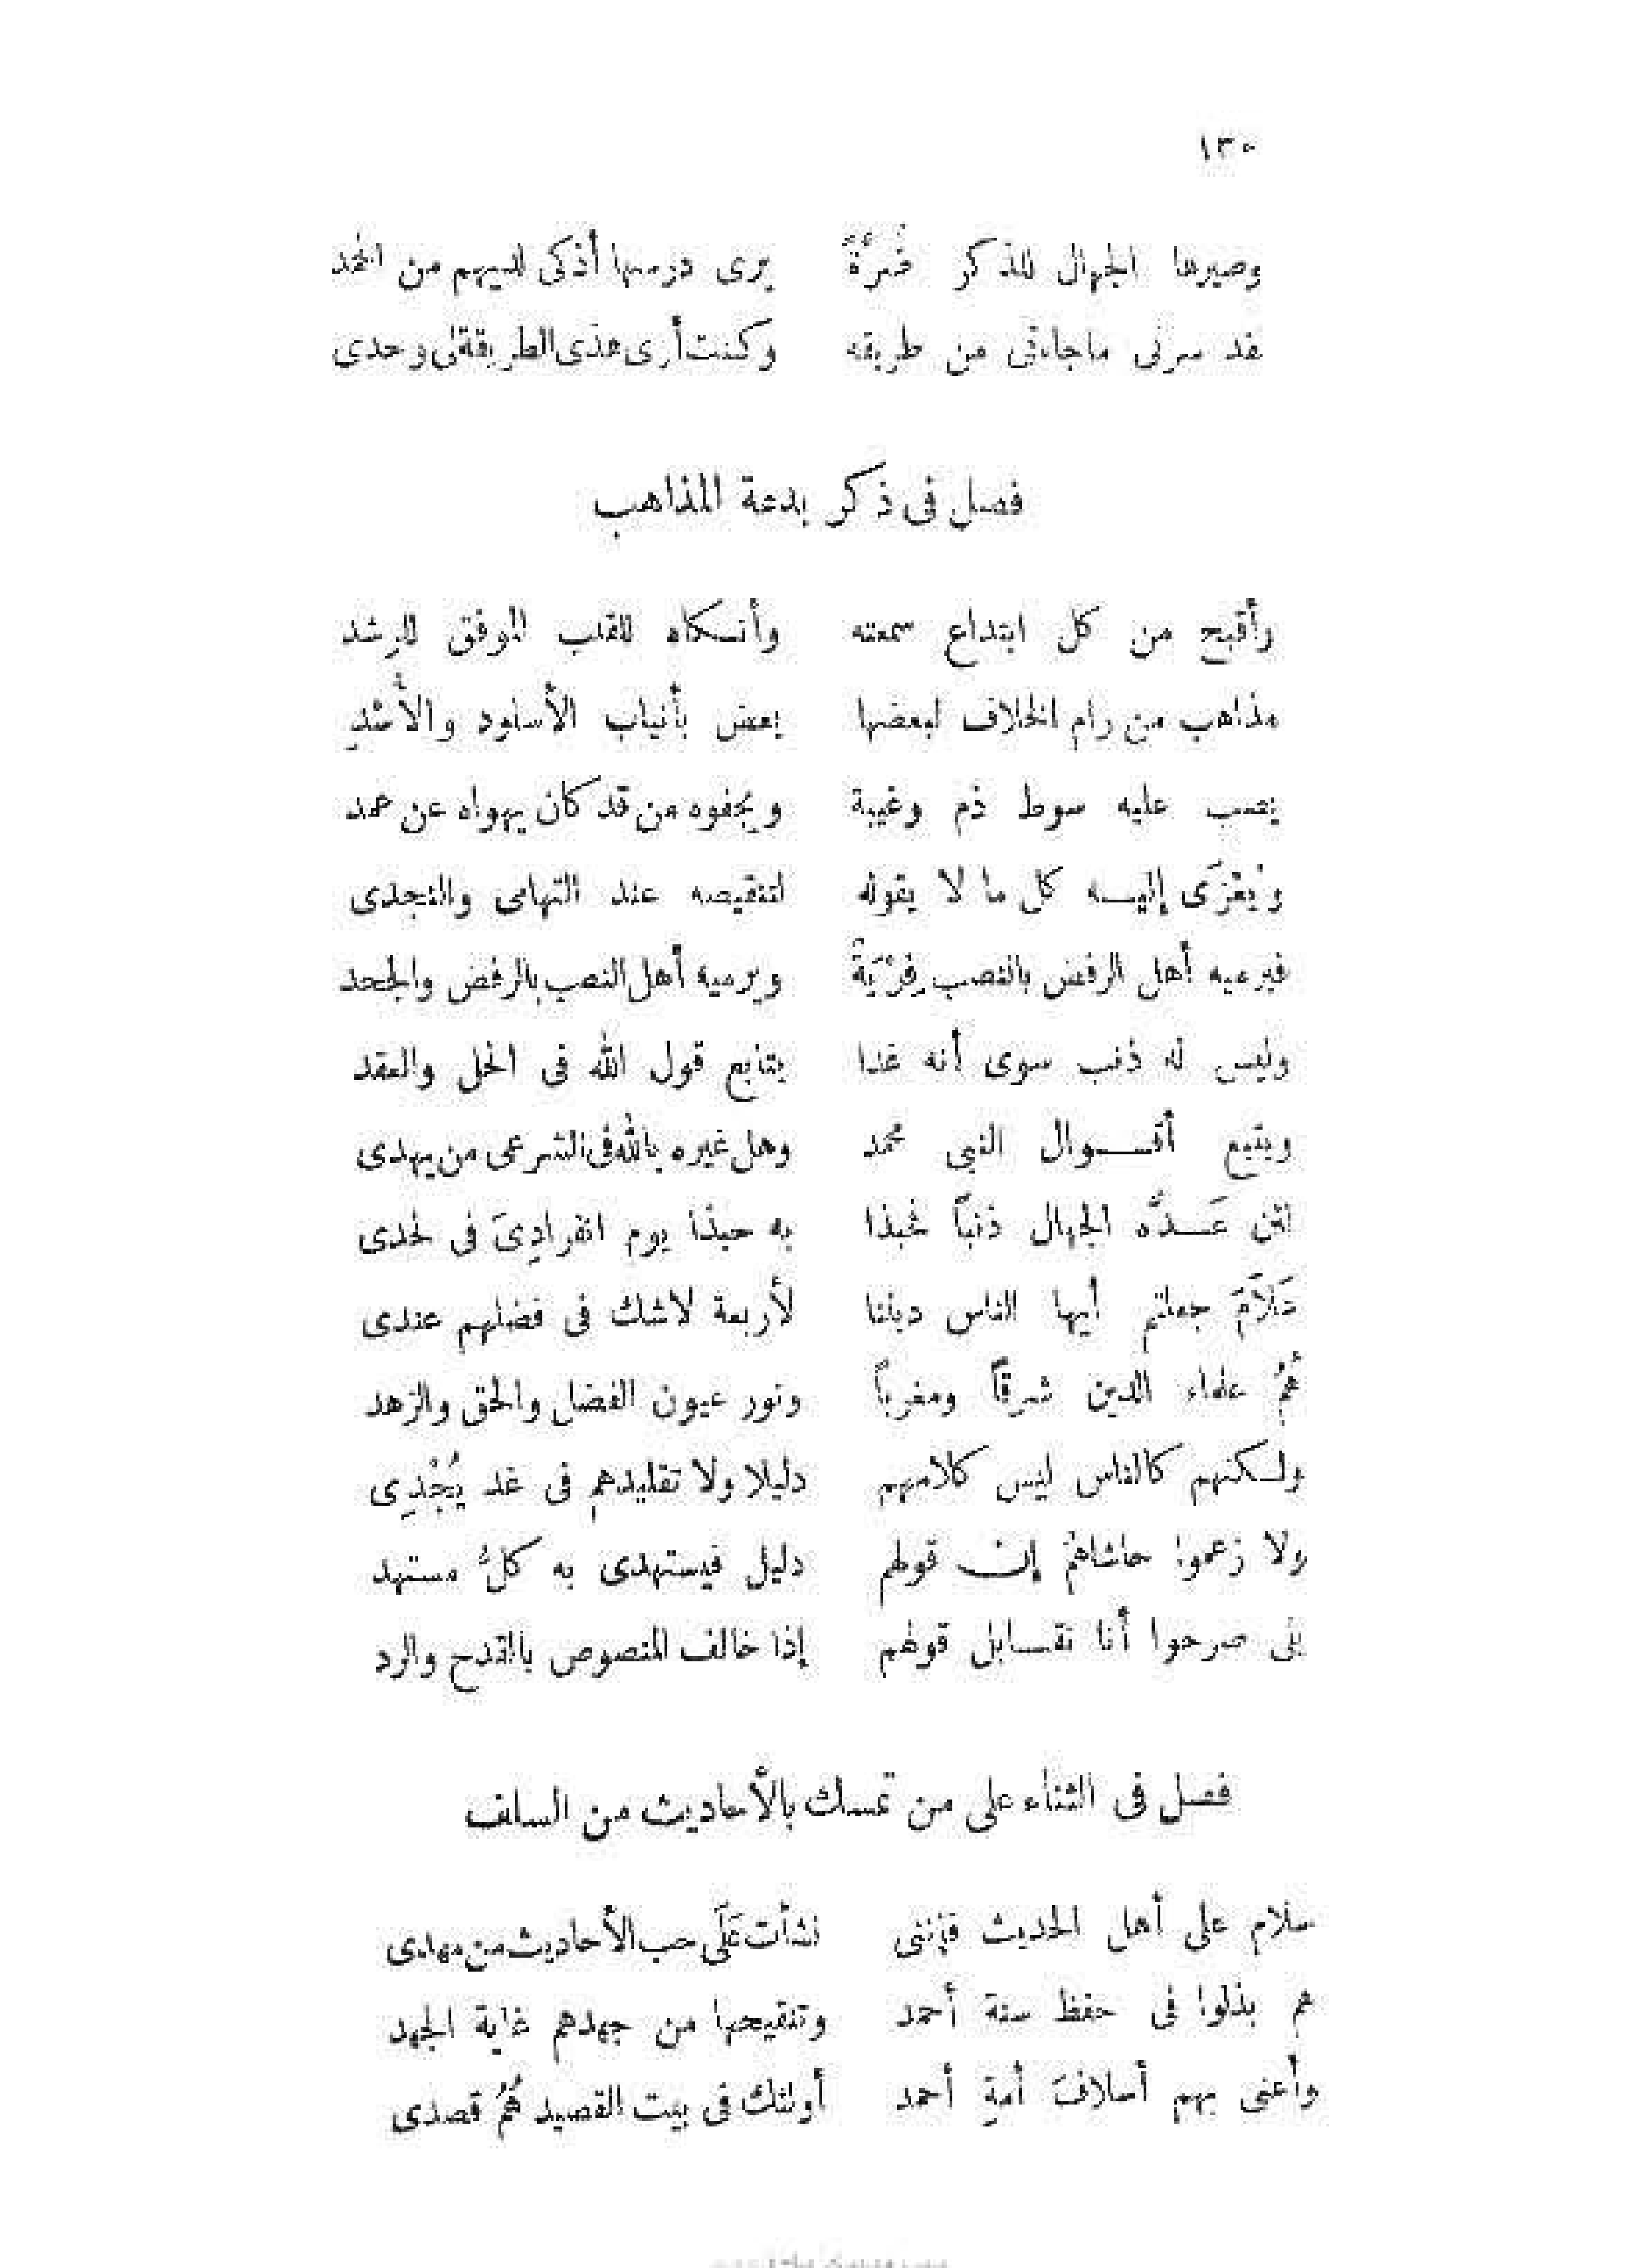 ١٣٠
وصيرها الجهال للذكر ضَرَّةً يرى درسها أذكى لديهم من الحمد
لقد سرنى ماجاءنى من طريقه وكنت أرى هذى الطريقة لى وحدى
فصل فى ذكر بدعة المذاهب
وأقبح من كل ابتداع سمعته وأنكاه للقلب الموفق للرشد
مذاهب من رام الخلاف لبعضها يعض بأنياب الأساود والأُسْدِ
يصب عليه سوط ذم وغيبة ويجفوه من قد كان يهواه عن عمد
ويُعْزَى إليه كل ما لا يقوله لتنقيصه عند التهامى والنجدى
فيرميه أهل الرفض بالنصب فِرْيَةً ويرميه أهل النصب بالرفض والجحد
وليس له ذنب سوى أنه غدا يتابع قول الله فى الحل والعقد
ويتبع أقـــوال النبى محمد وهل غيره بالله فى الشرعى من يهدى
لئن عَـــدَّه الجهال ذنباً فحبذا به حبذا يوم انفرادِىَ فى لحدى
عَلَامَ جعلتم أيها الناس ديننا لأربعة لاشك فى فضلهم عندى
هُمُ علماء الدين شرقاً ومغرباً ونور عيون الفضل والحق والزهد
ولكنهم كالناس ليس كلامهم دليلا ولا تقليدهم فى غد يُجْدِى
ولا زعموا حاشاهُمُ إن قولهم دليل فيستهدى به كلُّ مستهد
بلى صرحوا أنا نقـــابل قولهم إذا خالف المنصوص بالقدح والرد
فصل فى الثناء على من تمسك بالأحاديث من السلف
سلام على أهل الحديث فإننى نشأت عَلَى حب الأحاديث من مهدى
هم بذلوا فى حفظ سنة أحمد وتنقيحها من جهدهم غاية الجهد
وأعنى بهم أسلافَ أمةِ أحمد أولئك فى بيت القصيد هُمُ قصدى